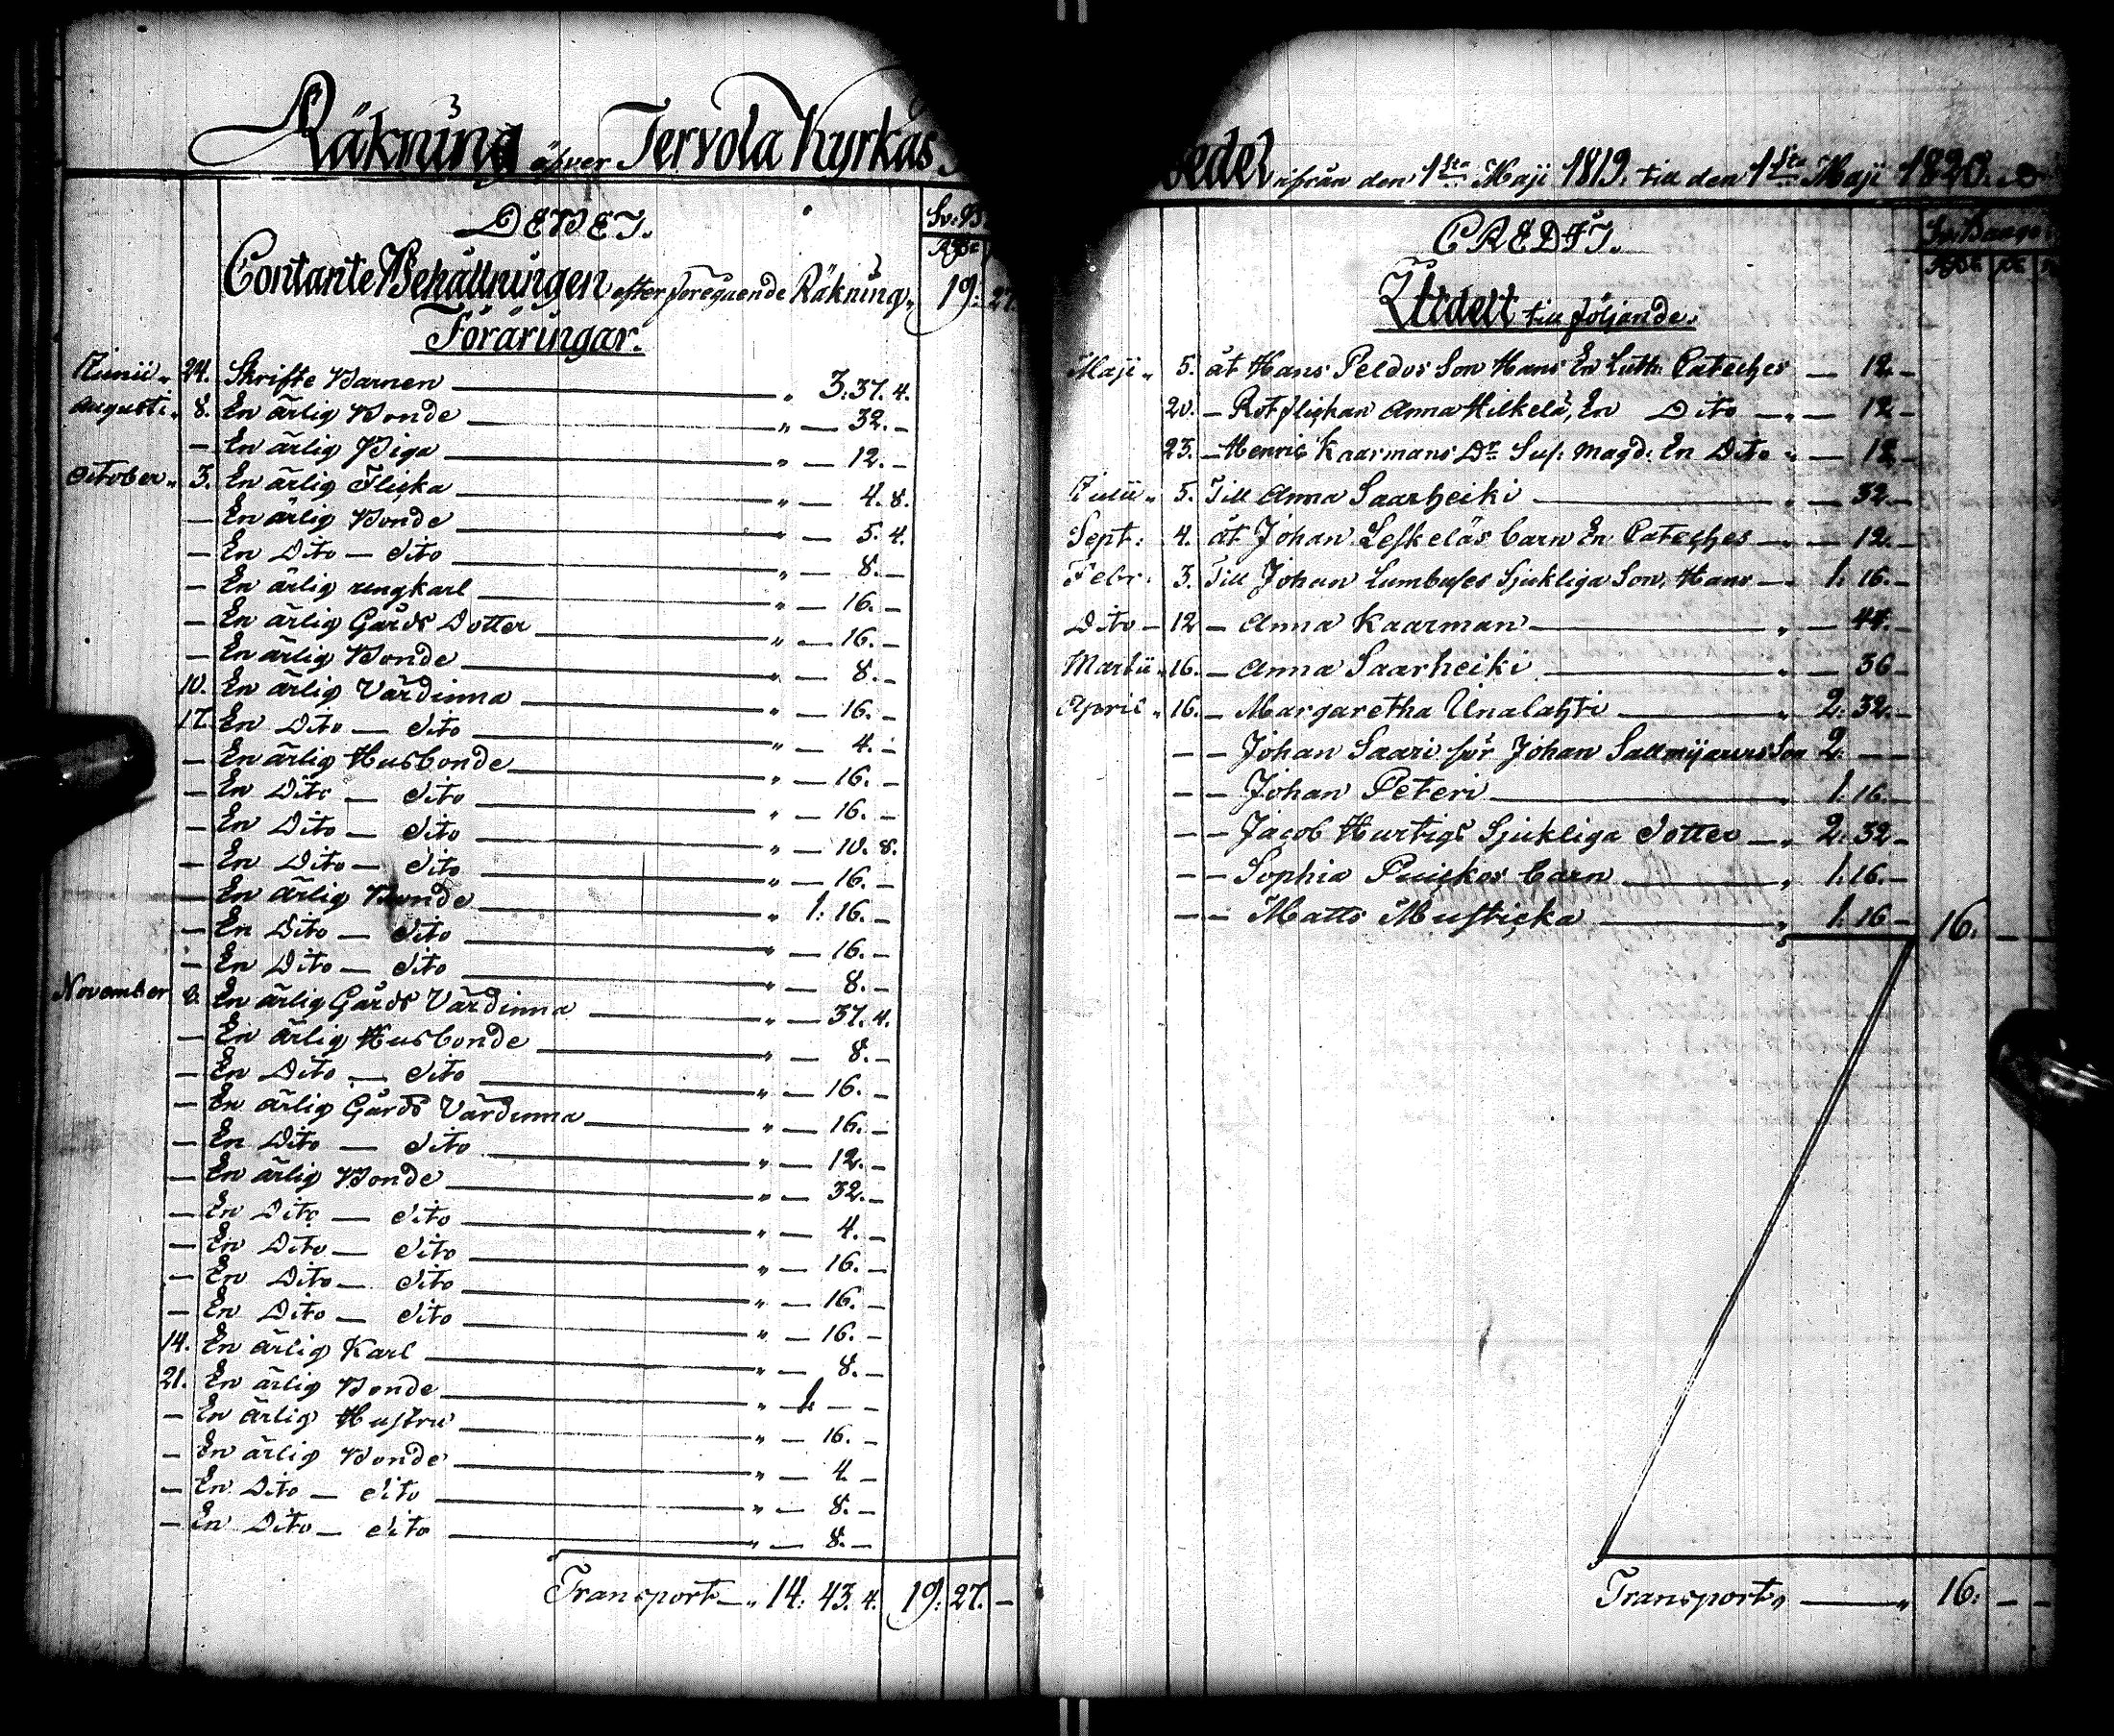 Räkning öfver Tervola Kyrkas
DEBET.
Sv: B
Rd:
Contante Behållningen efter föregående Räkning „ 19: 27.
Föräringar.
Junii „ 24. Skrifte Barnen „ 3: 37. 4.
Augusti „ 8. En ärlig Bonde „ — 32. —
— En ärlig Piga „ — 12. —
October „ 3. En ärlig Flicka „ — 4. 8.
— En ärlig Bonde „ — 5. 4.
— En Dito — dito „ — 8. —
— En ärlig ungkarl „ — 16. —
— En ärlig Gårds Dotter „ — 16. —
— En ärlig Bonde „ — 8. —
10. En ärlig Värdinna „ — 16. —
17. En Dito — dito „ — 4. —
— En ärlig Husbonde „ — 16. —
— En Dito — dito „ — 16. —
— En Dito — dito „ — 10. 8.
— En Dito — dito „ — 16. —
— En ärlig Bonde „ 1: 16. —
— En Dito — dito „ — 16. —
— En Dito — dito „ — 8. —
November En ärlig Gårds Värdinna „ — 37. 4.
— En ärlig Husbonde „ — 8. —
— En Dito — dito „ — 16. —
— En ärlig Gårds Värdinna „ — 16. —
— En Dito — dito „ — 12. —
— En ärlig Bonde „ — 32. —
— En Dito — dito „ — 4. —
— En Dito — dito „ — 16. —
— En Dito — dito „ — 16. —
— En Dito — dito „ — 16. —
14. En ärlig Karl „ — 8. —
21. En ärlig Bonde „ 1. — —
— En ärlig Hustru „ — 16. —
— En ärlig Bonde „ — 4. —
— En Dito — dito „ — 8. —
— En Dito — dito „ — 8. —
Transport „ 14: 43. 4. 19: 27. —
medel ifrån den 1sta Maji 1819. till den 1sta Maji 1820.
CREDIT.
Sv: Banco
Rd: sk
Utdelt till följande.
Maji „ 5. åt Hans Peldos Son Hans En Luth: Cateches — 12. —
20. — Rotflickan Anna Hilkelä, En Dito „ — 12 —
23. — Henric Kaarmans Dr Sus. Magd: En Dito „ — 12 —
Julii „ 5. Till Anna Saarheiki „ — 32. —
Sept: 4. åt Johan Leskeläs barn En Cateches „ — 12. —
Febr: 3. Till Johan Lumbuses Sjukliga Son, Hans „ 1: 16. —
Dito — 12 — Anna Kaarman „ — 44. —
Martii „ 16. — Anna Saarheiki „ — 36 —
April „ 16. — Margaretha Unalahti „ 2: 32. —
— — Johan Saari för Johan Sallmijarvis Son 2. — —
— — Johan Peteri „ 1: 16. —
— — Jacob Hurtigs Sjukliga Dotter „ 2: 32 —
— — Sophia Puickos barn „ 1: 16. —
— — Matts Musticka „ 1: 16 — 16. —
Transport „ 16: — —